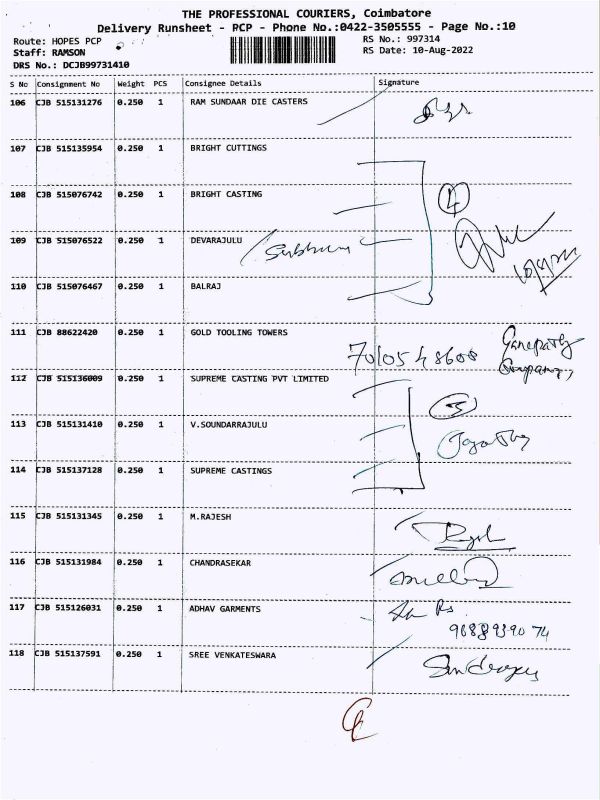 THE PROFESSIONAL COURIERS, Coimbatore
Delivery Runsheet - PCP - Phone No.:0422-3505555 - Page No.:10
Route: HOPES PCP
RS No.: 997314
Staff: RAMSON
RS Date: 10-Aug-2022
DRS No.: DCJB99731410
S No Consignment No Weight PCS Consignee Details Signature
106 CJB 515131276 0.250 1 RAM SUNDAAR DIE CASTERS
107 CJB 515135954 0.250 1 BRIGHT CUTTINGS
108 CJB 515076742 0.250 1 BRIGHT CASTING
4
109 CJB 515076522 0.250 1 DEVARAJULU
110 CJB 515076467 0.250 1 BALRAJ
111 CJB 88622420 0.250 1 GOLD TOOLING TOWERS
112 CJB 515136009 0.250 1 SUPREME CASTING PVT LIMITED
3
113 CJB 515131410 0.250 1 V.SOUNDARRAJULU
114 CJB 515137128 0.250 1 SUPREME CASTINGS
115 CJB 515131345 0.250 1 M.RAJESH
116 CJB 515131984 0.250 1 CHANDRASEKAR
117 CJB 515126031 0.250 1 ADHAV GARMENTS
118 CJB 515137591 0.250 1 SREE VENKATESWARA